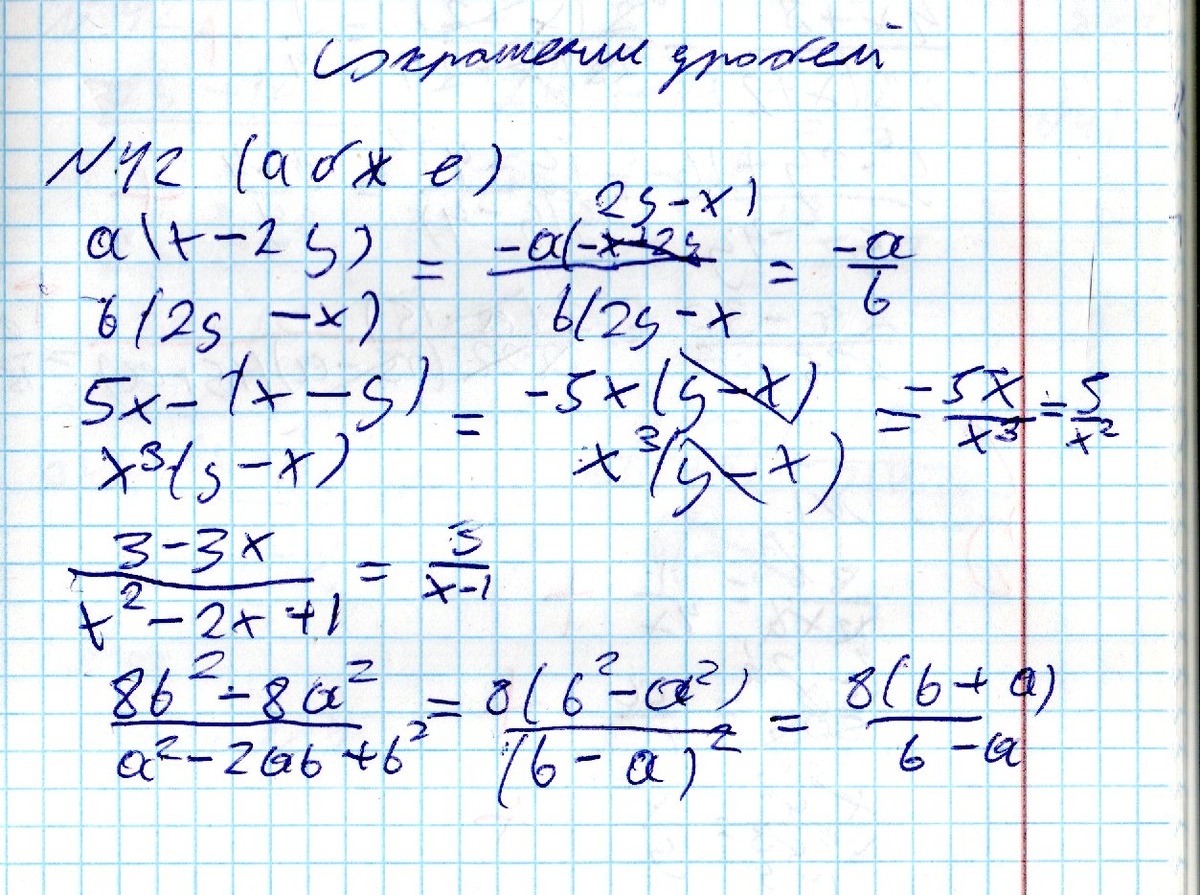 Сокращение дробей
№42 (а б ж е)
a(x-2y) / b(2y-x) = -a(-x+2y 2y-x) / b(2y-x = -a/b
5x-(x-y) / x³(y-x) = -5x(y-x) / x³(y-x) = -5x/x³ = 5/x²
3-3x / x²-2x+1 = 3/x-1
8b²-8a² / a²-2ab+b² = 8(b²-a²) / (b-a)² = 8(b+a) / b-a